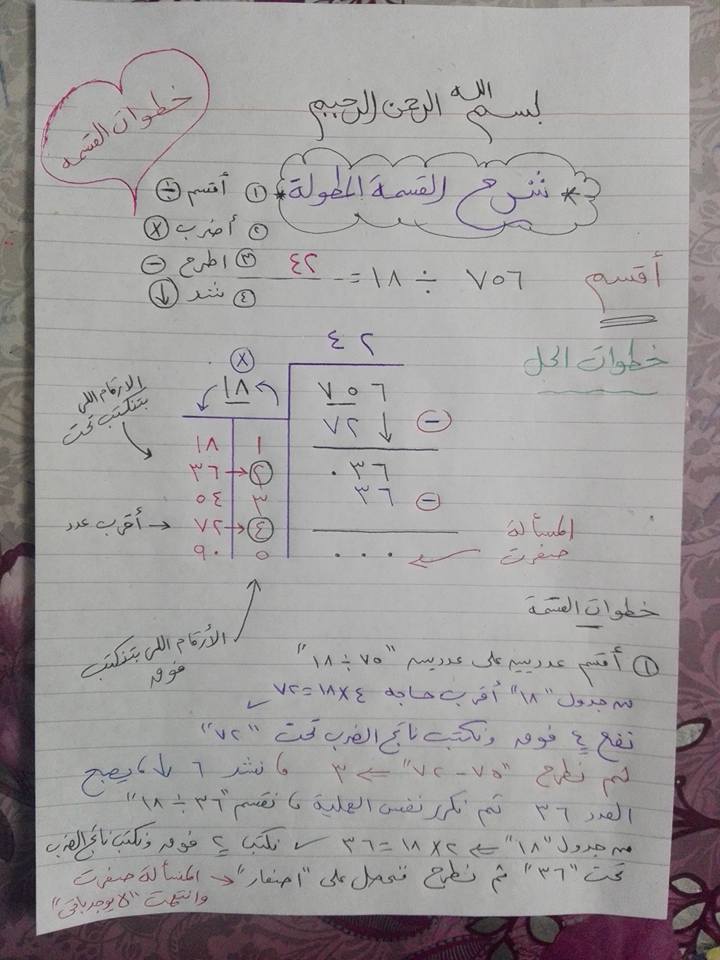 بسم الله الرحمن الرحيم
خطوات القسمه
* شرح القسمة المطولة *
١ أقسم ÷
٢ أضرب ×
٣ اطرح −
٤ نشد ↓
أقسم ٧٥٦ ÷ ١٨ = ٤٢
خطوات الحل
٤٢
× ١٨
٧٥٦
٧٢ ↓ −
٠٣٦
٣٦ −
٠٠٠
المسألة
صفرت
الارقام اللي
بتنكتب تحت
١ ١٨
٢ → ٣٦
٣ ٥٤
٤ → ٧٢ ← أقرب عدد
٥ ٩٠
الأرقام اللي بتنكتب
فوق
خطوات القسمة
١ أقسم عددين على عددين "٧٥ ÷ ١٨"
من جدول "١٨" أقرب حاجه ٤ × ١٨ = ٧٢ ✓
نضع ٤ فوق ونكتب ناتج الضرب تحت "٧٢"
ثم نطرح "٧٥ − ٧٢" ⇐ ٣ نشد ٦ يصبح
العدد ٣٦ ثم نكرر نفس العملية نقسم "٣٦ ÷ ١٨"
من جدول "١٨" ⇐ ٢ × ١٨ = ٣٦ ✓ نكتب ٢ فوق ونكتب ناتج الضرب
تحت "٣٦" ثم نطرح فنحصل على "اصفار" ← المسألة صفرت
وانتهت "لا يوجد باقي"